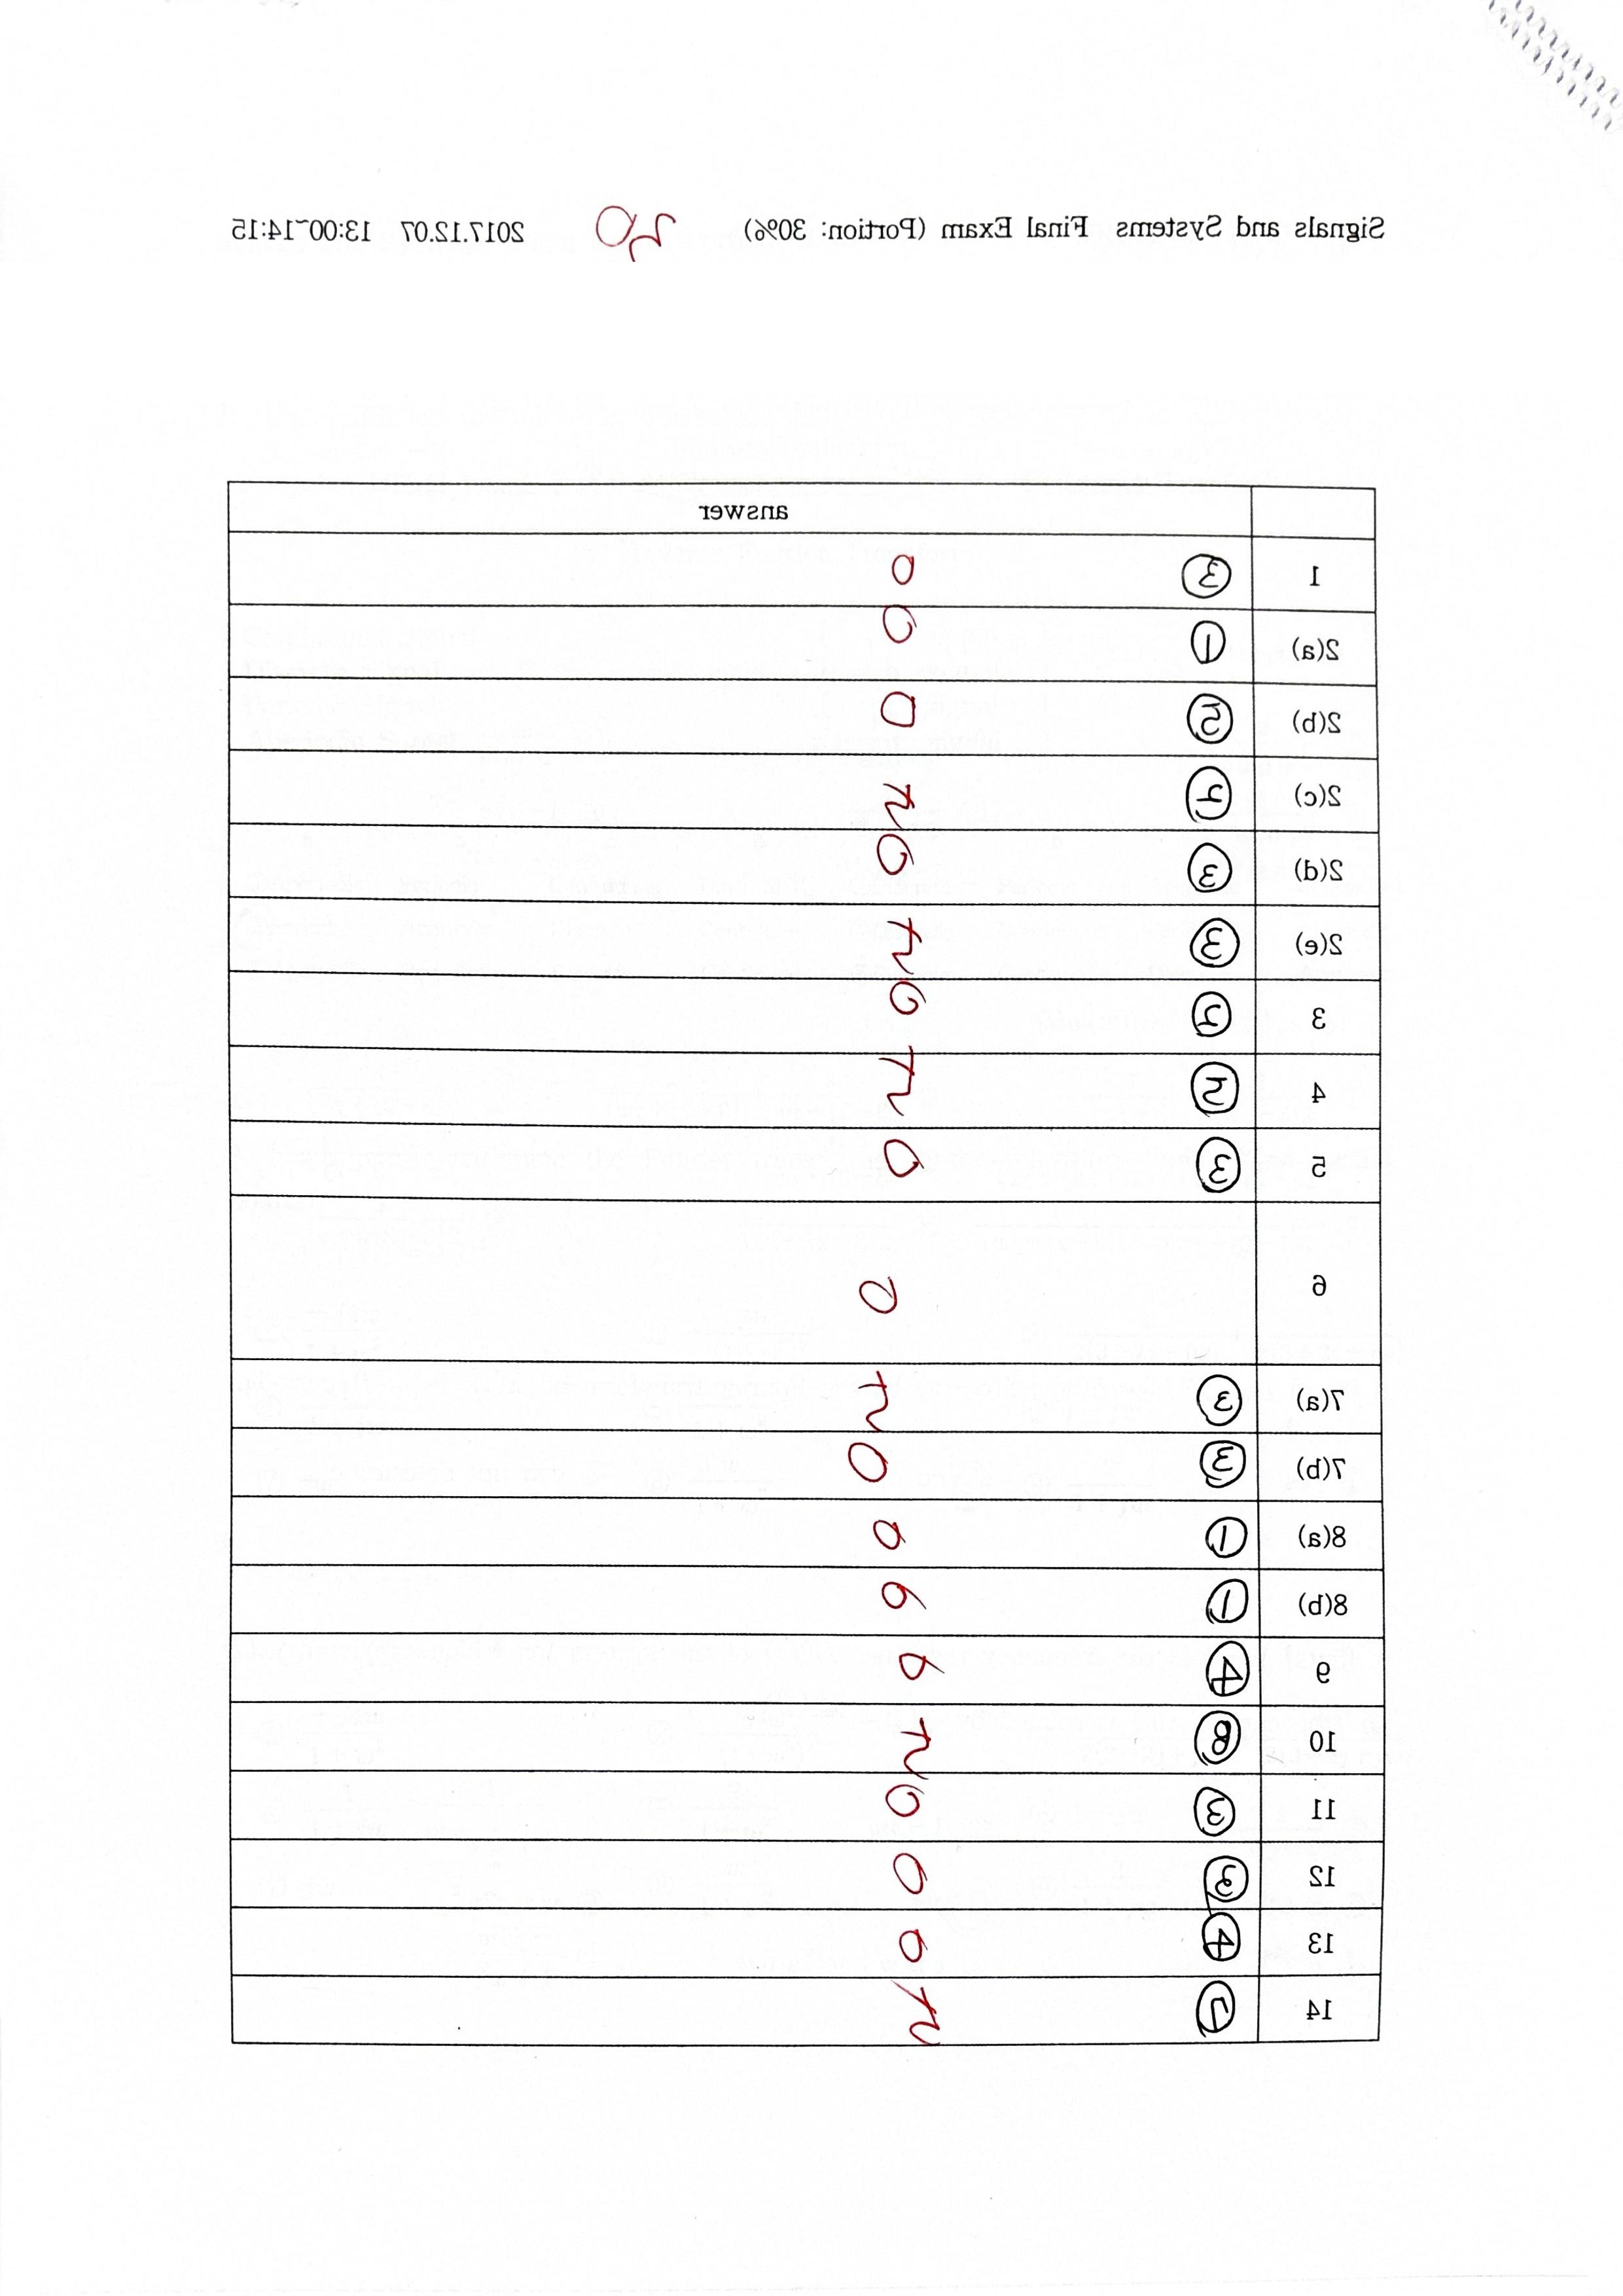 Signals and Systems Final Exam (Portion: 30%) 2017.12.07 13:00~14:15
answer
1 ③ 0
2(a) ① 0
2(b) 0
2(c)
2(d) ③ 0
2(e) ③
3 0
4
5 ③ 0
6 0
7(a) ③
7(b) ③ 0
8(a) ① 0
8(b) ① 0
9 ④ 0
10 ⑧
11 ③ 0
12 ③ 0
13 ④ 0
14